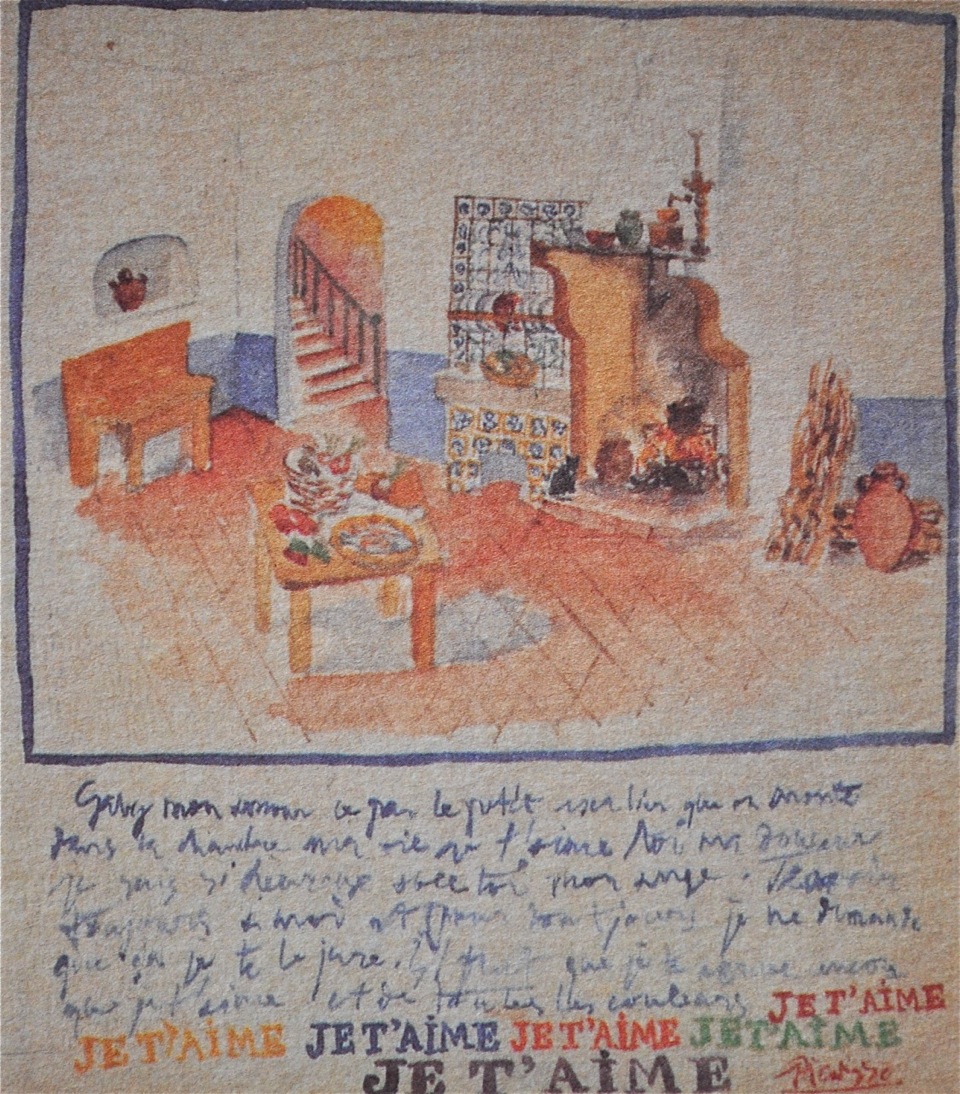 Gaby mon amour ce par le petit escalier que on monte
dans la chambre ma vie je t'aime toi ma douceur
je suis si heureux avec toi mon ange.
toujours à moi et pour toujours je ne demande
que ça je te le jure. Il faut que je te écrive encore
que je t'aime et de toutes les couleurs
JE T'AIME
JE T'AIME JE T'AIME JE T'AIME JE T'AIME
JE T'AIME Picasso.